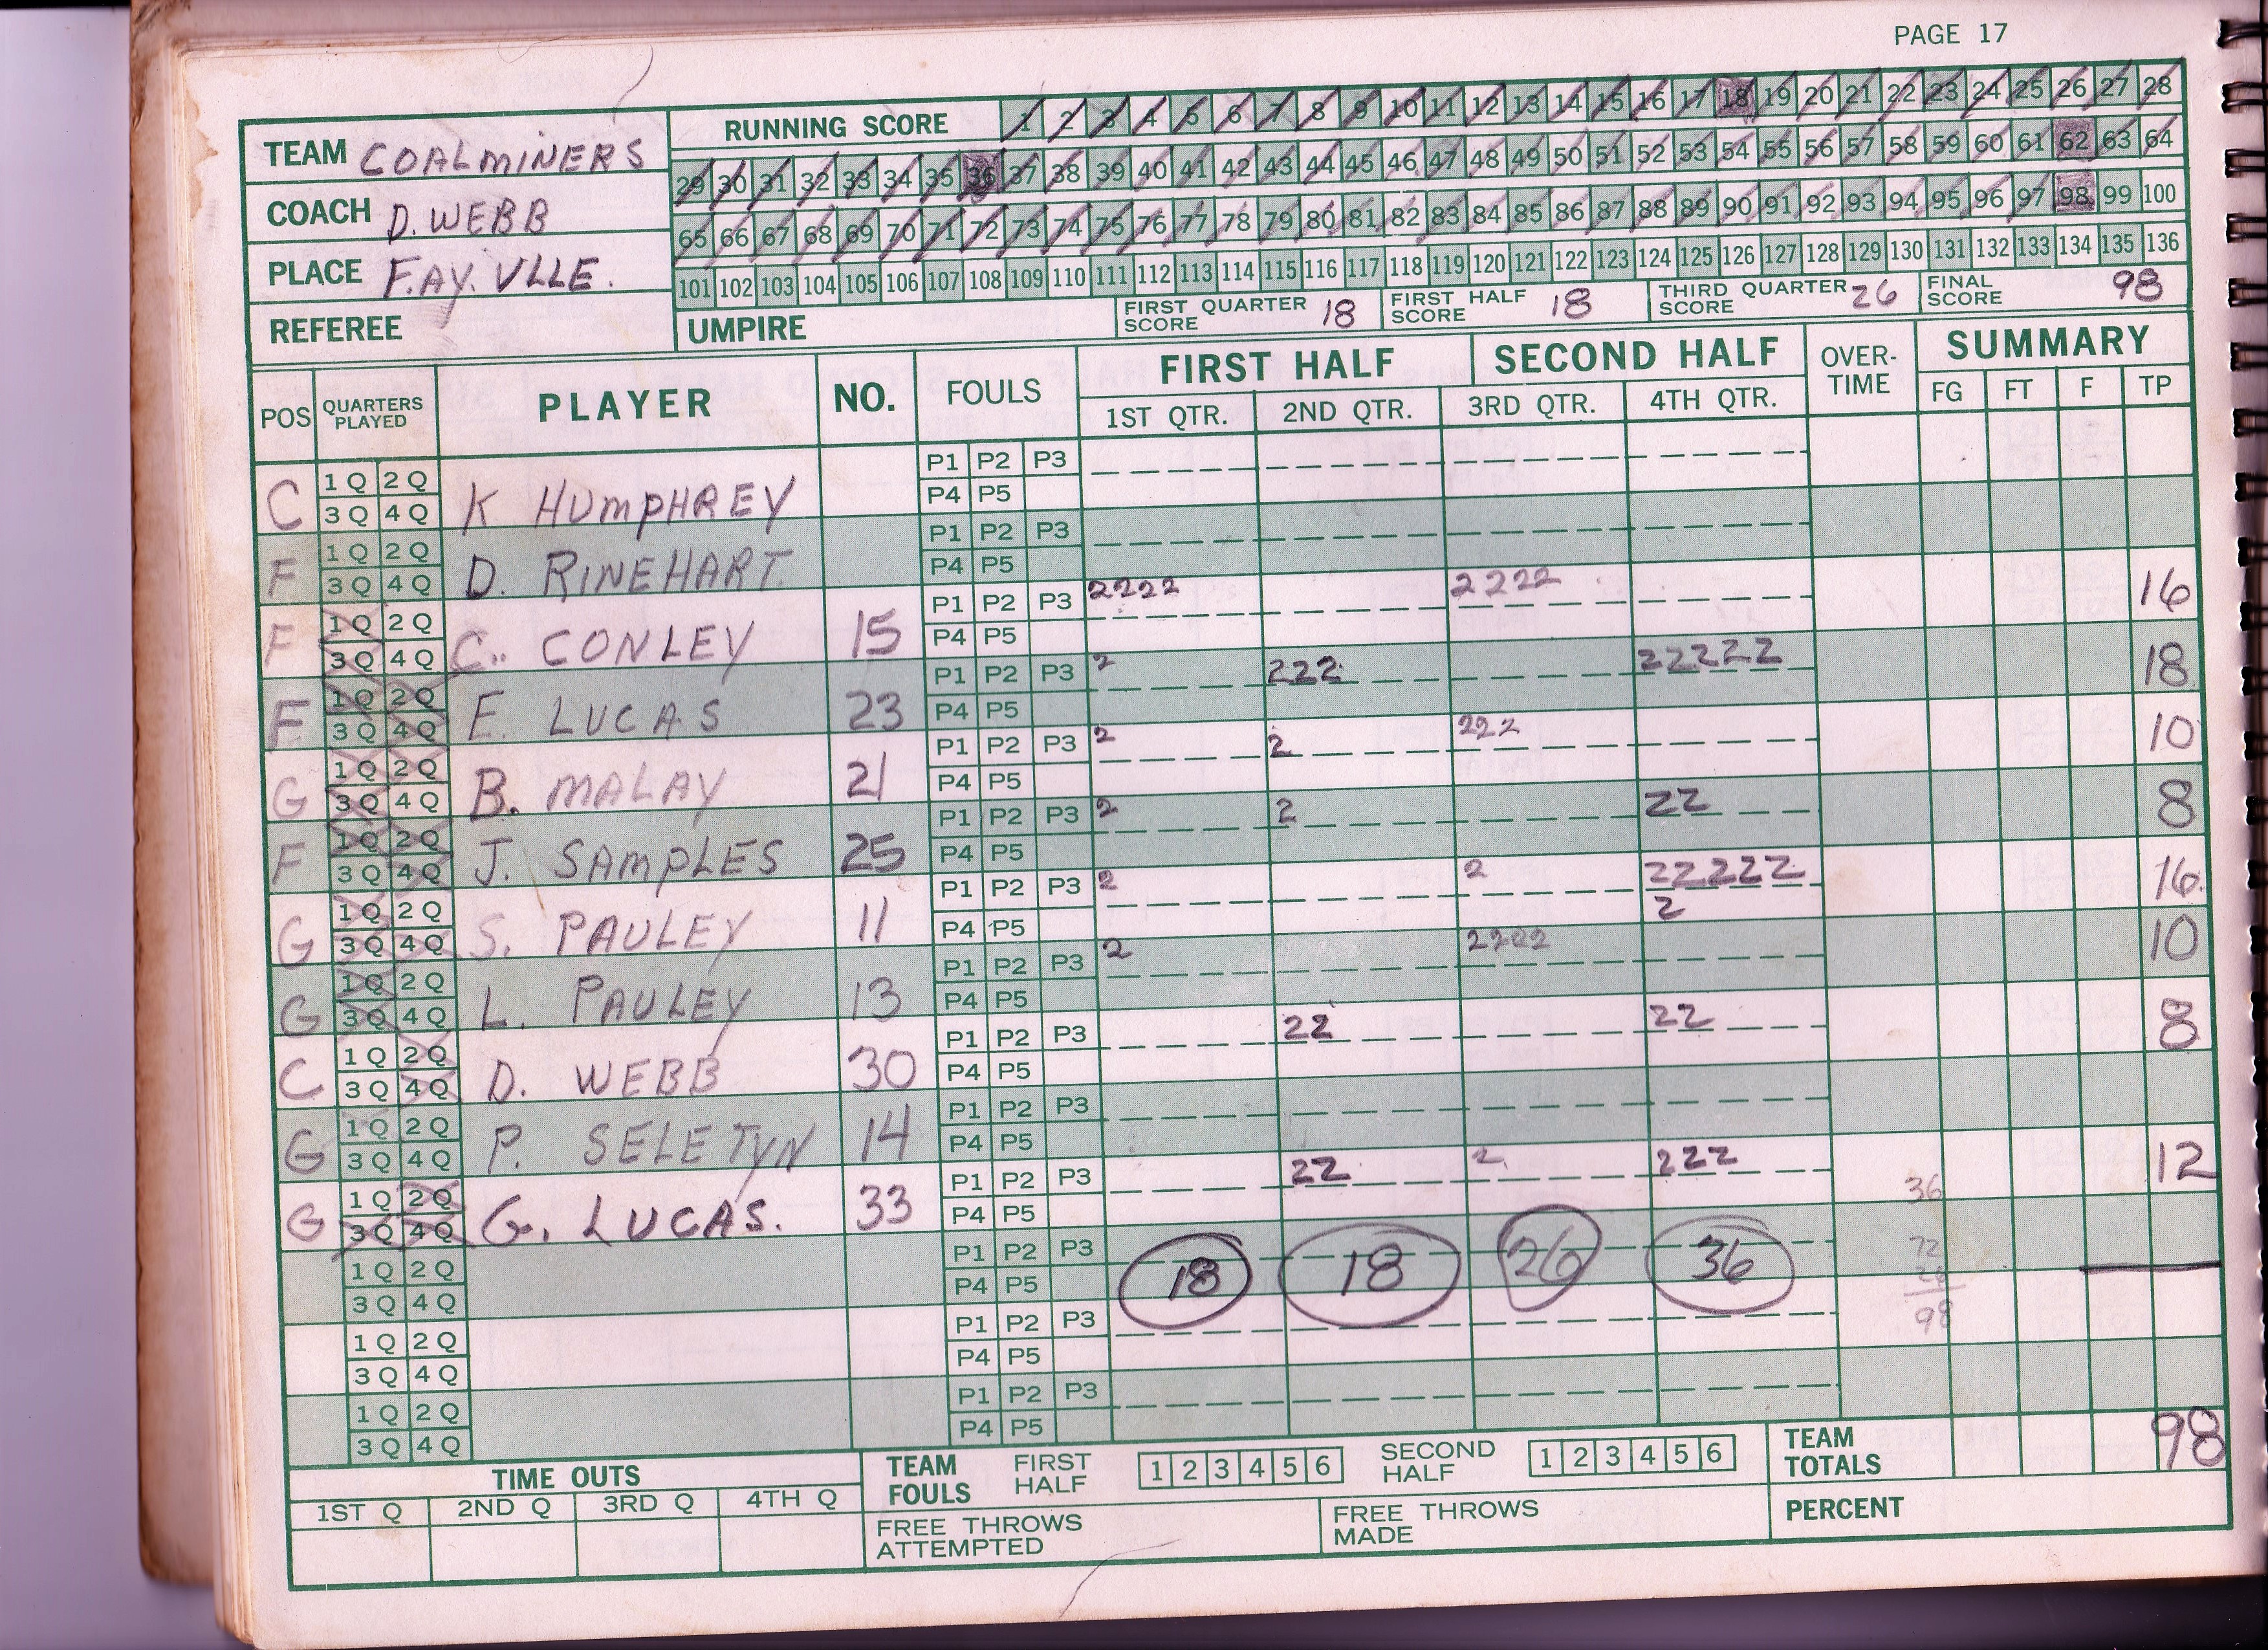 PAGE 17
TEAM COALMINERS
COACH D. WEBB
PLACE F.AY. VLLE.
REFEREE
RUNNING SCORE 1 2 3 4 5 6 7 8 9 10 11 12 13 14 15 16 17 18 19 20 21 22 23 24 25 26 27 28
29 30 31 32 33 34 35 36 37 38 39 40 41 42 43 44 45 46 47 48 49 50 51 52 53 54 55 56 57 58 59 60 61 62 63 64
65 66 67 68 69 70 71 72 73 74 75 76 77 78 79 80 81 82 83 84 85 86 87 88 89 90 91 92 93 94 95 96 97 98 99 100
101 102 103 104 105 106 107 108 109 110 111 112 113 114 115 116 117 118 119 120 121 122 123 124 125 126 127 128 129 130 131 132 133 134 135 136
UMPIRE FIRST QUARTER SCORE 18 FIRST HALF SCORE 18 THIRD QUARTER SCORE 26 FINAL SCORE 98
POS QUARTERS PLAYED PLAYER NO. FOULS FIRST HALF SECOND HALF OVER-TIME SUMMARY
1ST QTR. 2ND QTR. 3RD QTR. 4TH QTR. FG FT F TP
C 1Q 2Q 3Q 4Q K HUMPHREY P1 P2 P3 P4 P5
F 1Q 2Q 3Q 4Q D. RINEHART P1 P2 P3 P4 P5
F 1Q 2Q 3Q 4Q C. CONLEY 15 P1 P2 P3 P4 P5 2222 2222 16
F 1Q 2Q 3Q 4Q E. LUCAS 23 P1 P2 P3 P4 P5 2 222 22222 18
G 1Q 2Q 3Q 4Q B. MALAY 21 P1 P2 P3 P4 P5 2 2 222 10
F 1Q 2Q 3Q 4Q J. SAMPLES 25 P1 P2 P3 P4 P5 2 2 22 8
G 1Q 2Q 3Q 4Q S. PAULEY 11 P1 P2 P3 P4 P5 2 2 22222 2 16
G 1Q 2Q 3Q 4Q L. PAULEY 13 P1 P2 P3 P4 P5 2 2222 10
C 1Q 2Q 3Q 4Q D. WEBB 30 P1 P2 P3 P4 P5 22 22 8
G 1Q 2Q 3Q 4Q P. SELETYN 14 P1 P2 P3 P4 P5
G 1Q 2Q 3Q 4Q G. LUCAS. 33 P1 P2 P3 P4 P5 22 2 222 12
36
1Q 2Q 3Q 4Q P1 P2 P3 P4 P5 18 18 26 36
72
26
98
1Q 2Q 3Q 4Q P1 P2 P3 P4 P5
1Q 2Q 3Q 4Q P1 P2 P3 P4 P5
TIME OUTS
1ST Q 2ND Q 3RD Q 4TH Q
TEAM FOULS FIRST HALF 1 2 3 4 5 6 SECOND HALF 1 2 3 4 5 6
FREE THROWS ATTEMPTED FREE THROWS MADE
TEAM TOTALS 98
PERCENT